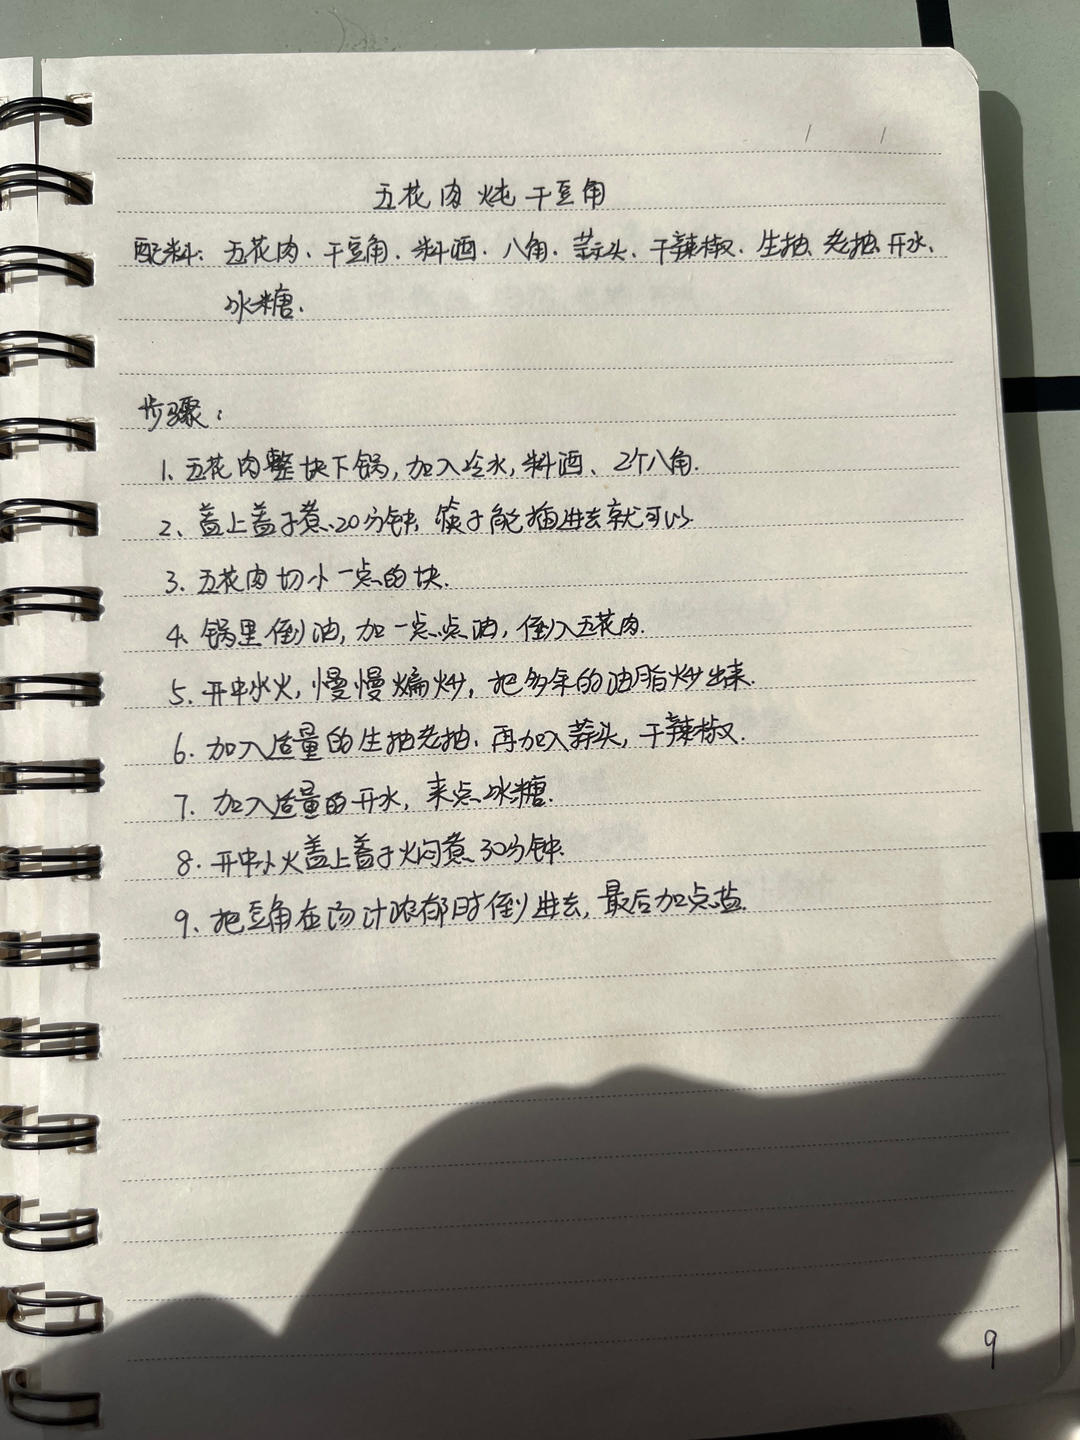 五花肉炖干豆角
配料: 五花肉、干豆角、料酒、八角、蒜头、干辣椒、生抽、老抽、开水、
冰糖.
步骤:
1、五花肉整块下锅,加入冷水,料酒、2个八角.
2、盖上盖子煮20分钟, 筷子能插进去就可以.
3. 五花肉切小一点的块.
4、锅里倒油,加一点点油,倒入五花肉.
5. 开中火,慢慢煸炒,把多余的油脂炒出来.
6. 加入适量的生抽老抽、再加入蒜头,干辣椒.
7. 加入适量的开水,来点冰糖.
8. 开中小火盖上盖子火闷煮30分钟.
9、把豆角在汤汁浓郁时倒进去,最后加点盐.
9